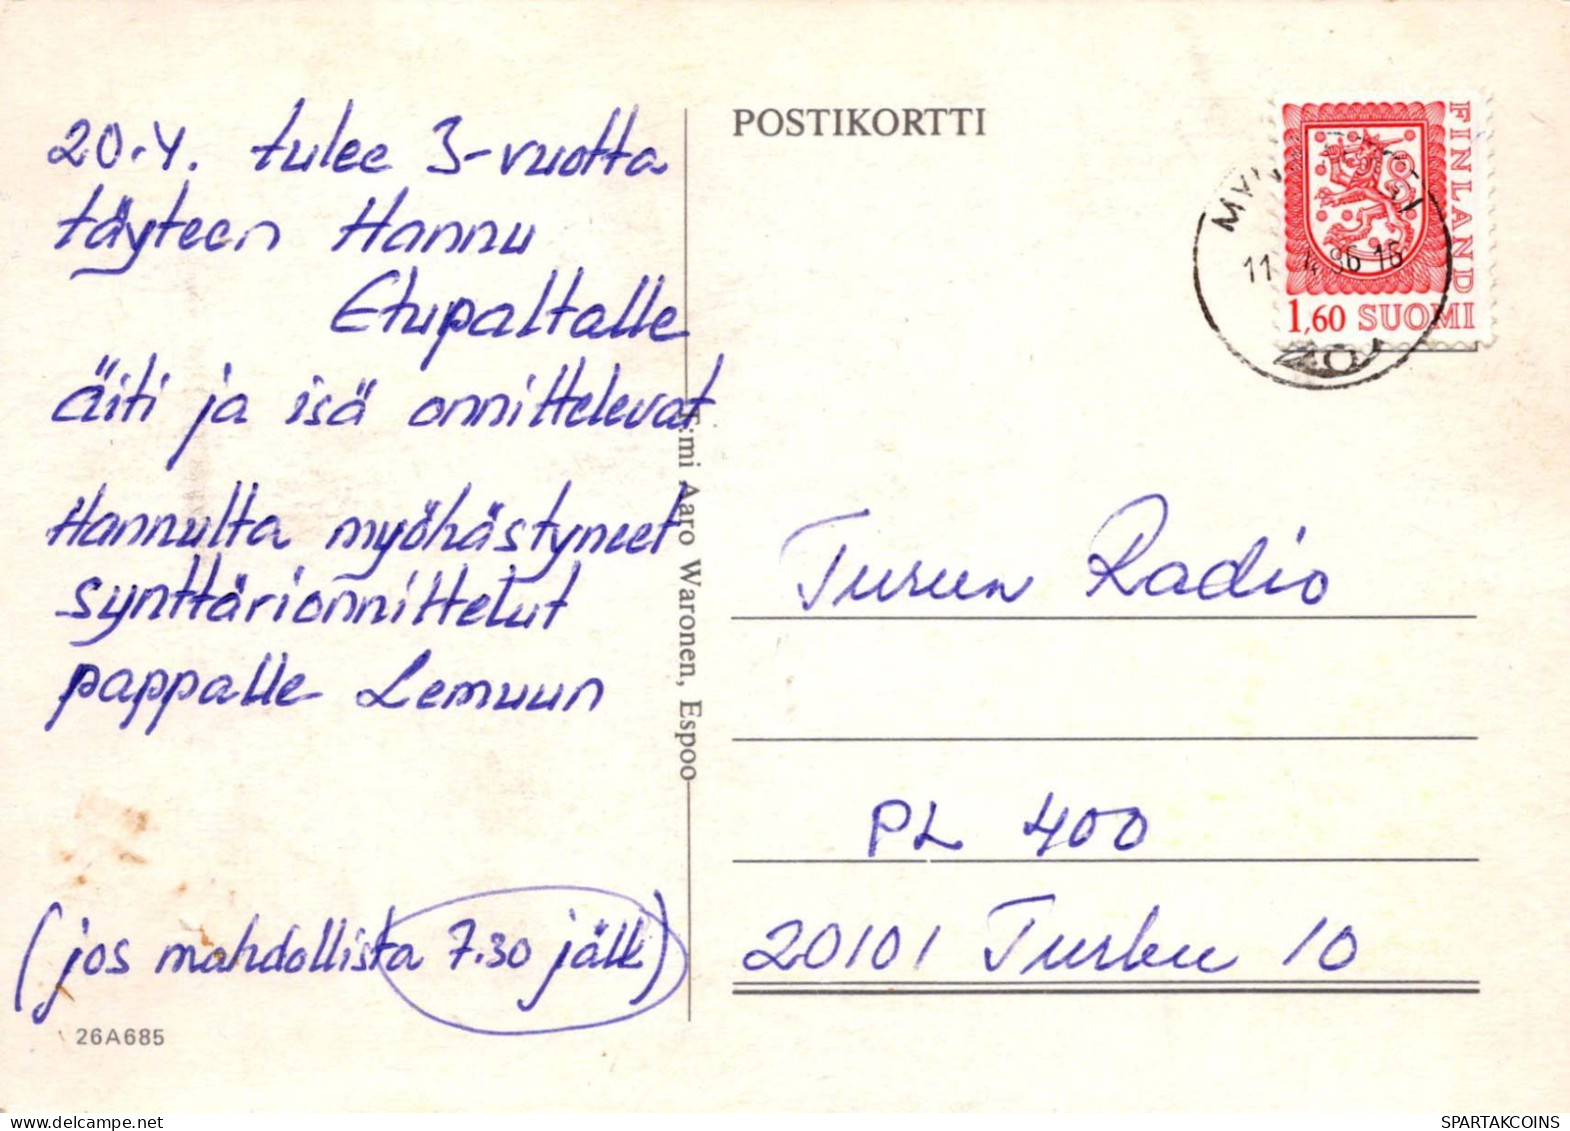 20.4. tulee 3-vuotta
täyteen Hannu
Etupaltalle
äiti ja isä onnittelevat
Hannulta myöhästyneet
synttärionnittelut
pappalle Lemuun
(jos mahdollista 7.30 jälk)
26A685
T:mi Aaro Waronen, Espoo
POSTIKORTTI
FINLAND
1,60 SUOMI
11 4.86 16
Turun Radio
PL 400
20101 Turku 10
SPARTAKCOINS